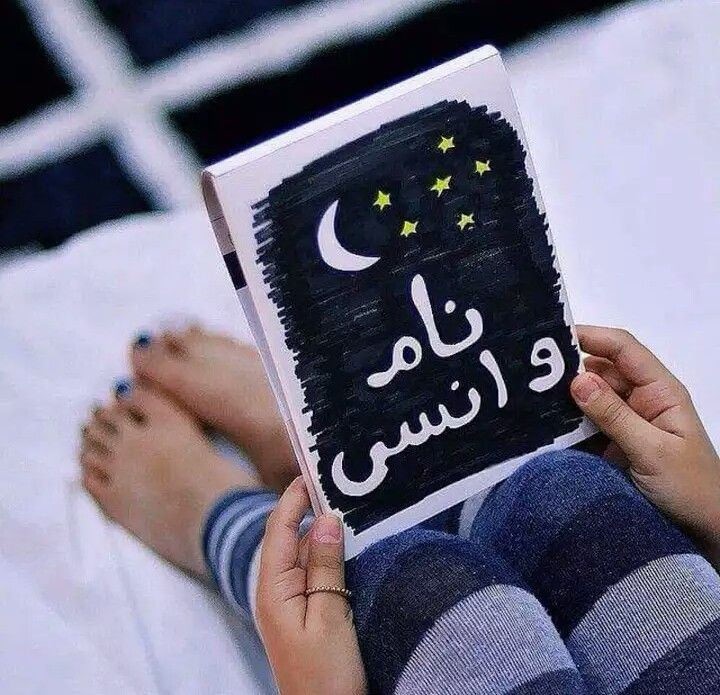 نام
و انسى